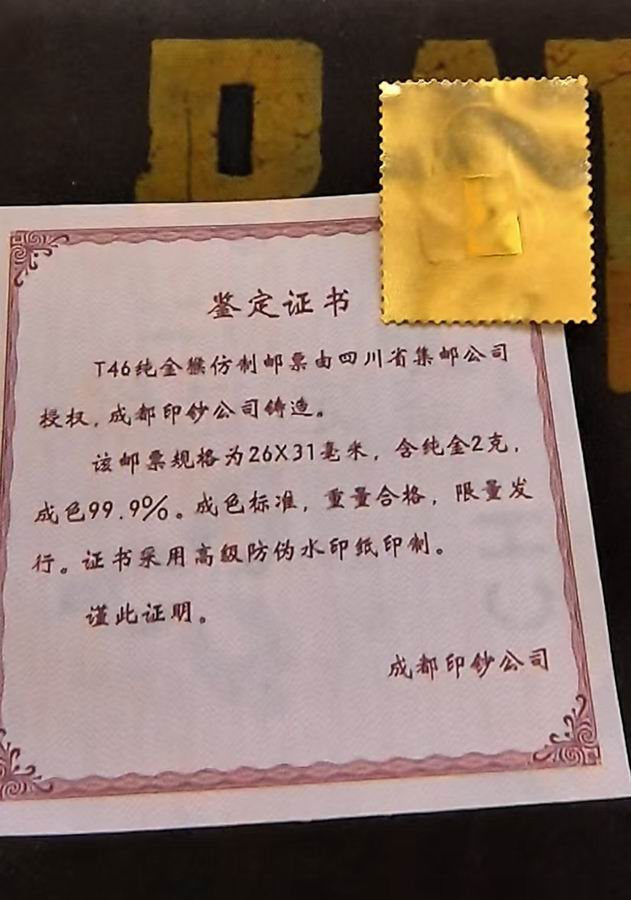 鉴定证书
T46纯金猴仿制邮票由四川省集邮公司
授权,成都印钞公司铸造。
该邮票规格为26X31毫米,含纯金2克,
成色99.9%。成色标准,重量合格,限量发
行。证书采用高级防伪水印纸印制。
谨此证明。
成都印钞公司